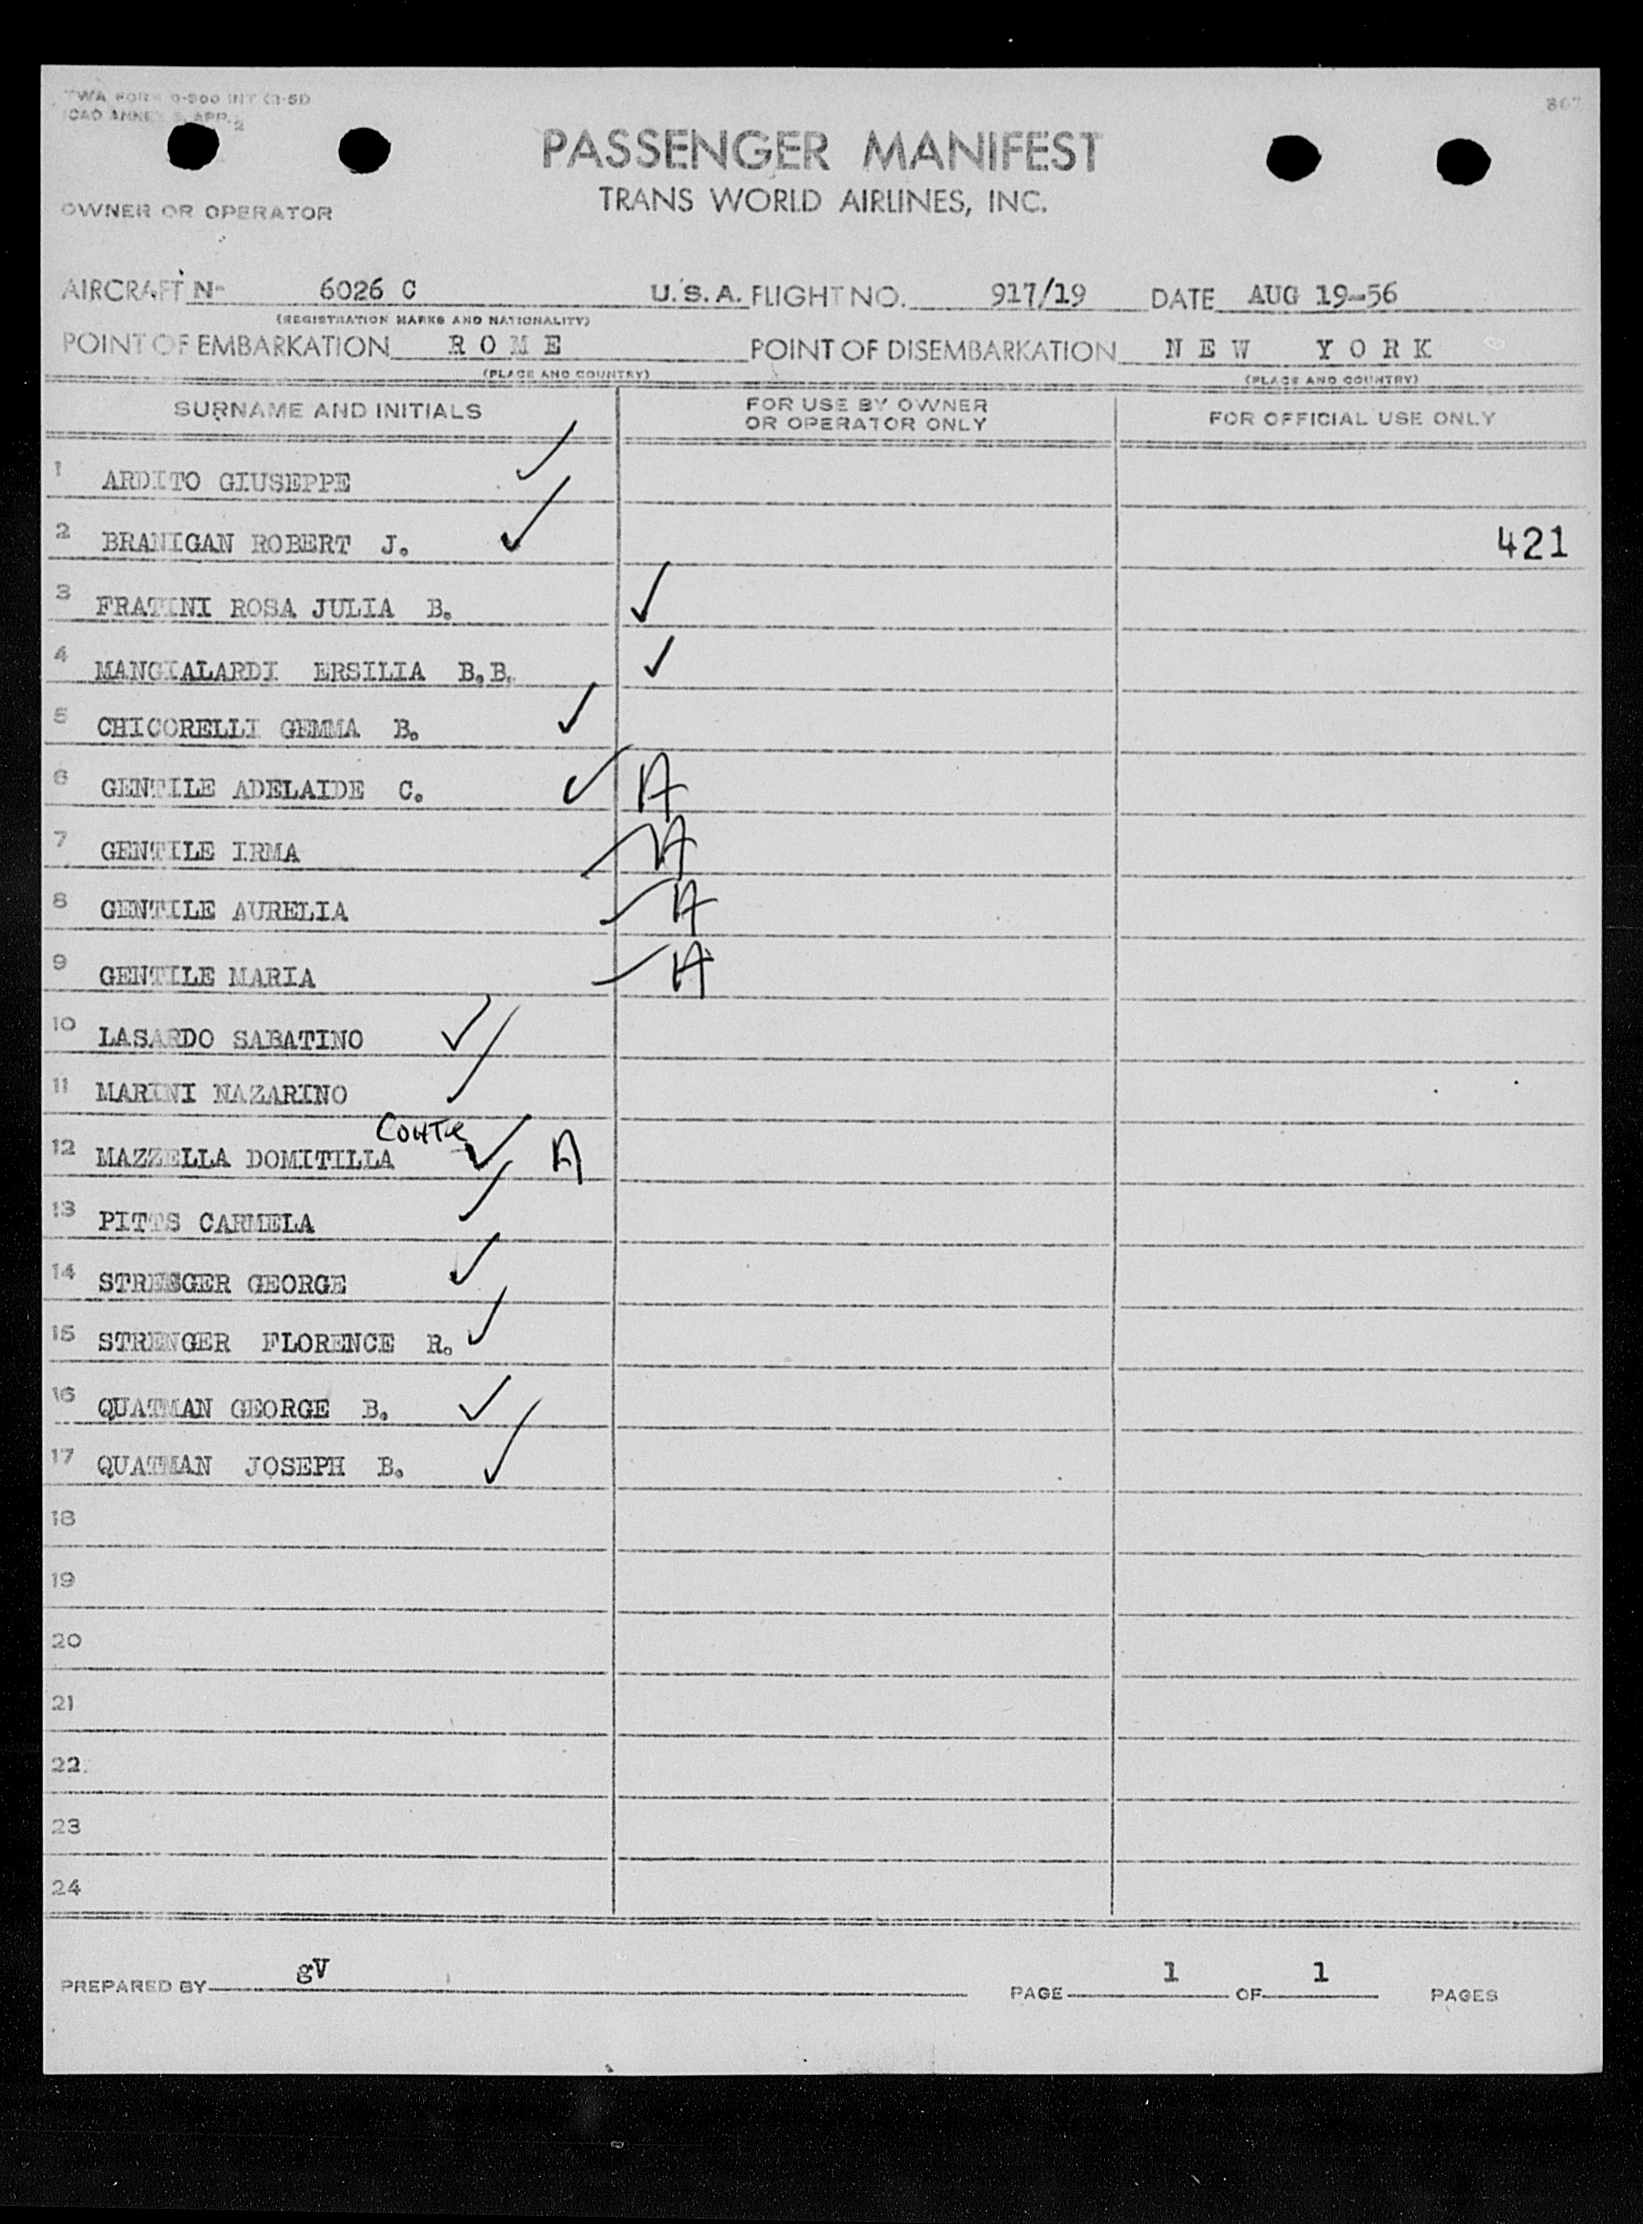 TWA FORM 0-500 INT (3-51)
ICAO ANNEX 9, APP. 2
PASSENGER MANIFEST
TRANS WORLD AIRLINES, INC.
OWNER OR OPERATOR
AIRCRAFT Nº 6026 C U.S.A. FLIGHT NO. 917/19 DATE AUG 19-56
(REGISTRATION MARKS AND NATIONALITY)
POINT OF EMBARKATION R O M E POINT OF DISEMBARKATION N E W Y O R K
(PLACE AND COUNTRY) (PLACE AND COUNTRY)
SURNAME AND INITIALS FOR USE BY OWNER OR OPERATOR ONLY FOR OFFICIAL USE ONLY
1 ARDITO GIUSEPPE ✓
2 BRANIGAN ROBERT J. ✓ 421
3 FRATINI ROSA JULIA B. ✓
4 MANGIALARDI ERSILIA B.B. ✓
5 CHICORELLI GEMMA B. ✓
6 GENTILE ADELAIDE C. ✓ A
7 GENTILE IRMA A
8 GENTILE AURELIA A
9 GENTILE MARIA A
10 LASARDO SABATINO ✓
11 MARINI NAZARINO ✓
Conte
12 MAZZELLA DOMITILLA ✓ A
13 PITTS CARMELA ✓
14 STRENGER GEORGE ✓
15 STRENGER FLORENCE R. ✓
16 QUATMAN GEORGE B. ✓
17 QUATMAN JOSEPH B. ✓
18
19
20
21
22
23
24
PREPARED BY gV PAGE 1 OF 1 PAGES